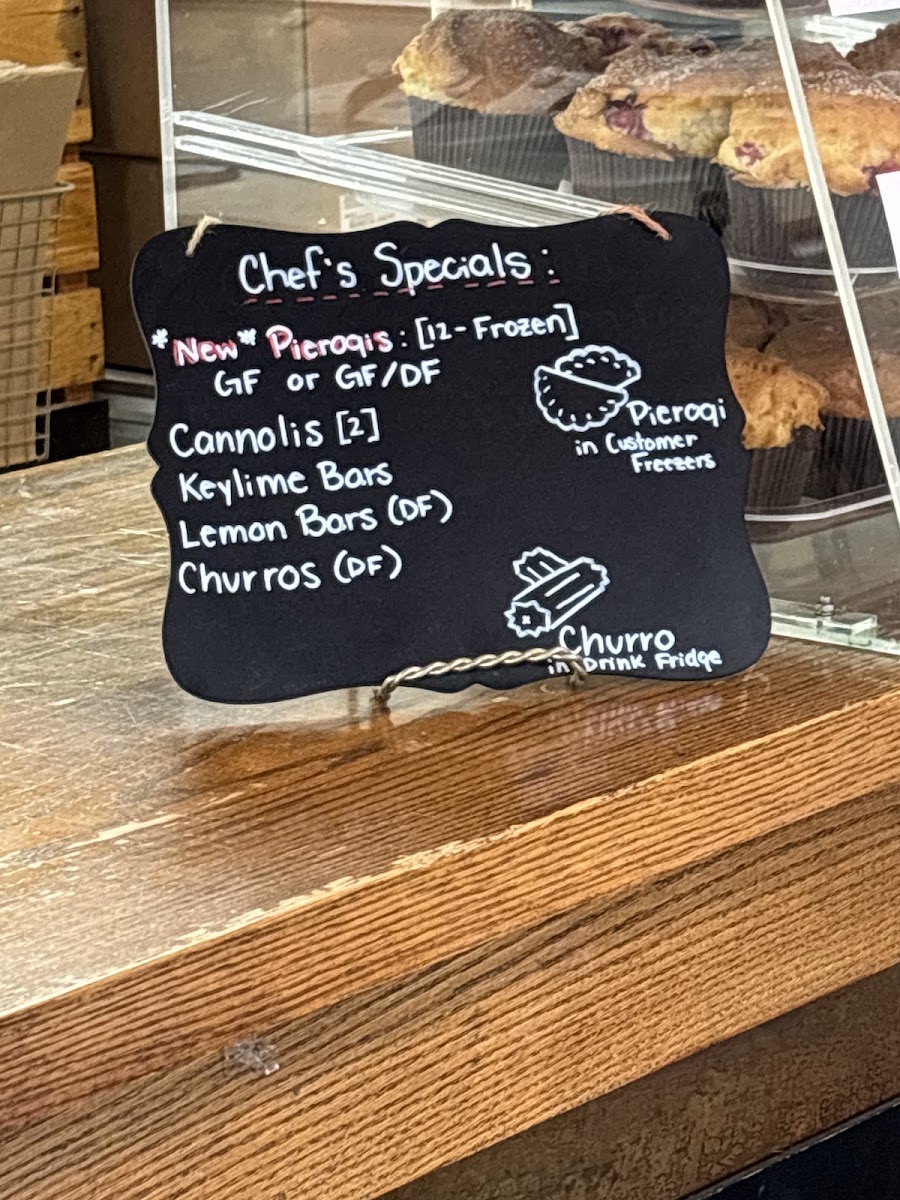 Chef's Specials:
*New* Pierogis: [12-Frozen]
GF or GF/DF
Cannolis [2]
Keylime Bars
Lemon Bars (DF)
Churros (DF)
Pierogi
in Customer
Freezers
Churro
in Drink Fridge